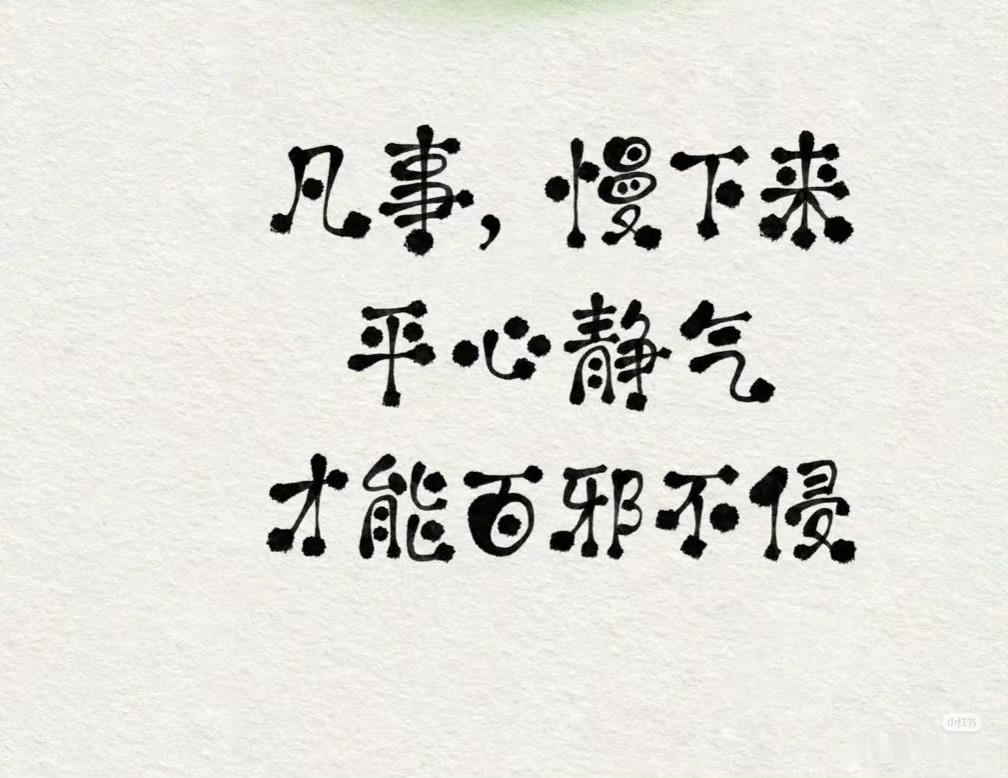 凡事，慢下来
平心静气
才能百邪不侵
小红书